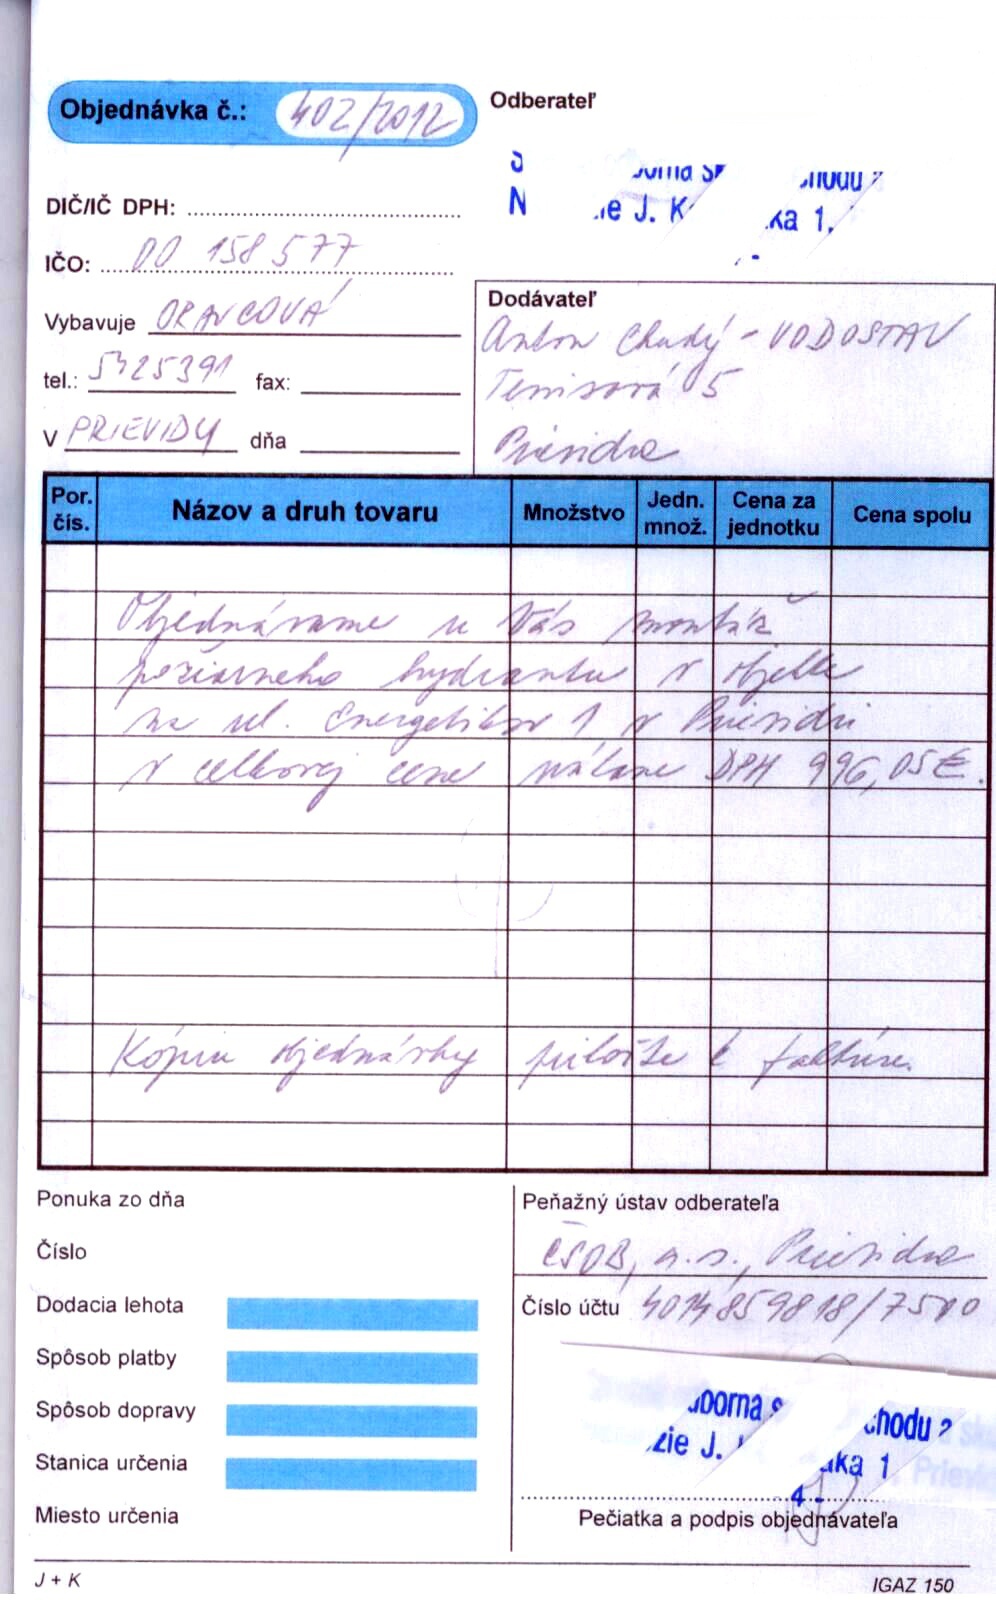 Objednávka č.: 402/2012
Odberateľ
DIČ/IČ DPH:
IČO: 00 158 577
Vybavuje ORAVCOVÁ
tel.: 5425391 fax:
V PRIEVIDZI dňa
Dodávateľ
Anton Chudý - VODOSTAV
Tenisová 5
Prievidza
Por. čís. Názov a druh tovaru Množstvo Jedn. množ. Cena za jednotku Cena spolu
Objednávame u Vás montáž
požiarneho hydrantu v objekte
na ul. Energetikov 1 v Prievidzi
v celkovej cene vrátane DPH 996,05 €.
Kópiu objednávky priložte k faktúre.
Ponuka zo dňa
Číslo
Dodacia lehota
Spôsob platby
Spôsob dopravy
Stanica určenia
Miesto určenia
Peňažný ústav odberateľa
ČSOB, a.s., Prievidza
Číslo účtu 4014859818/7500
- 4 -
Pečiatka a podpis objednávateľa
J + K
IGAZ 150